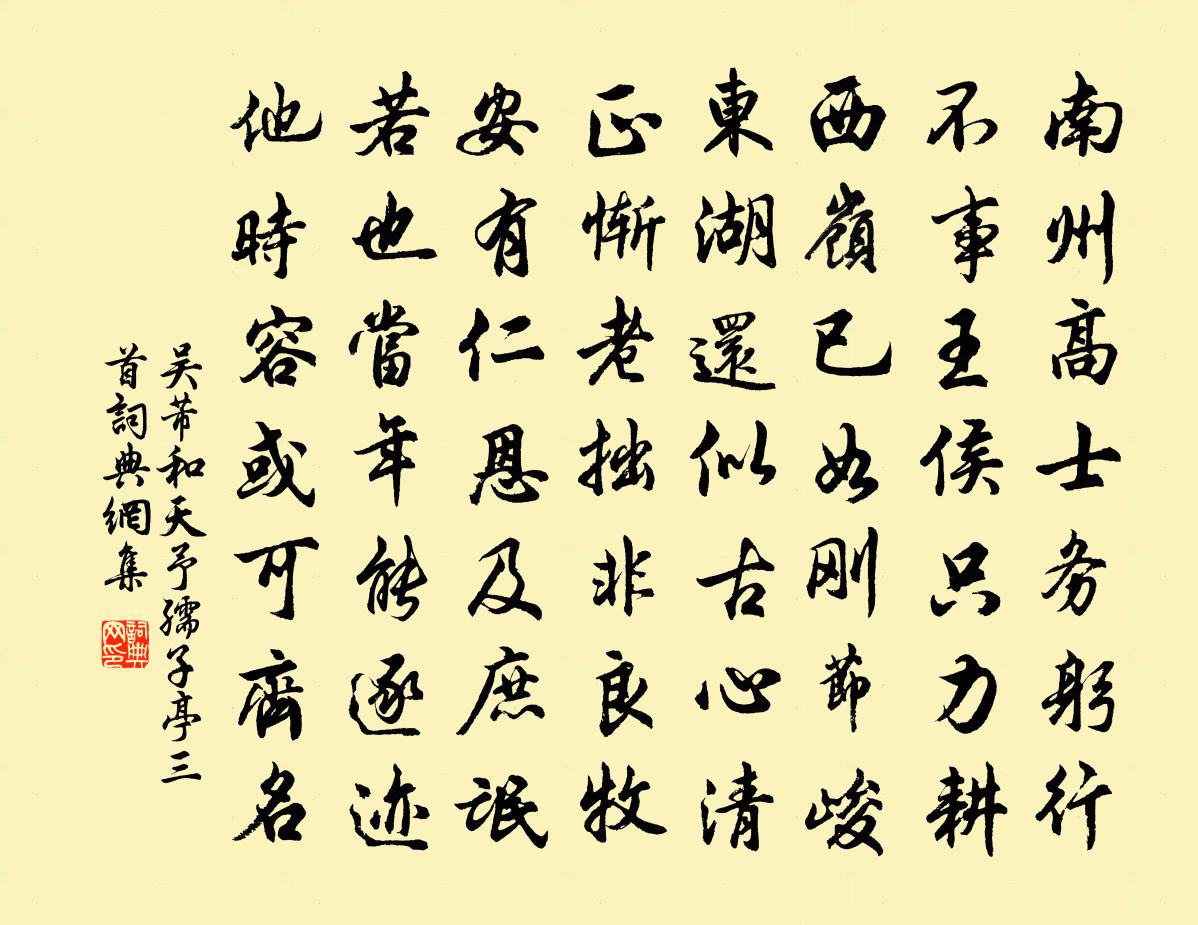 南州高士务躬行
不事王侯只力耕
西嶺已如刚節峻
東湖還似古心清
正慚老拙非良牧
安有仁恩及庶氓
若也當年能逐迹
他時容或可齊名
吴芾和天予孺子亭三
首詞典網集
詞典
网印